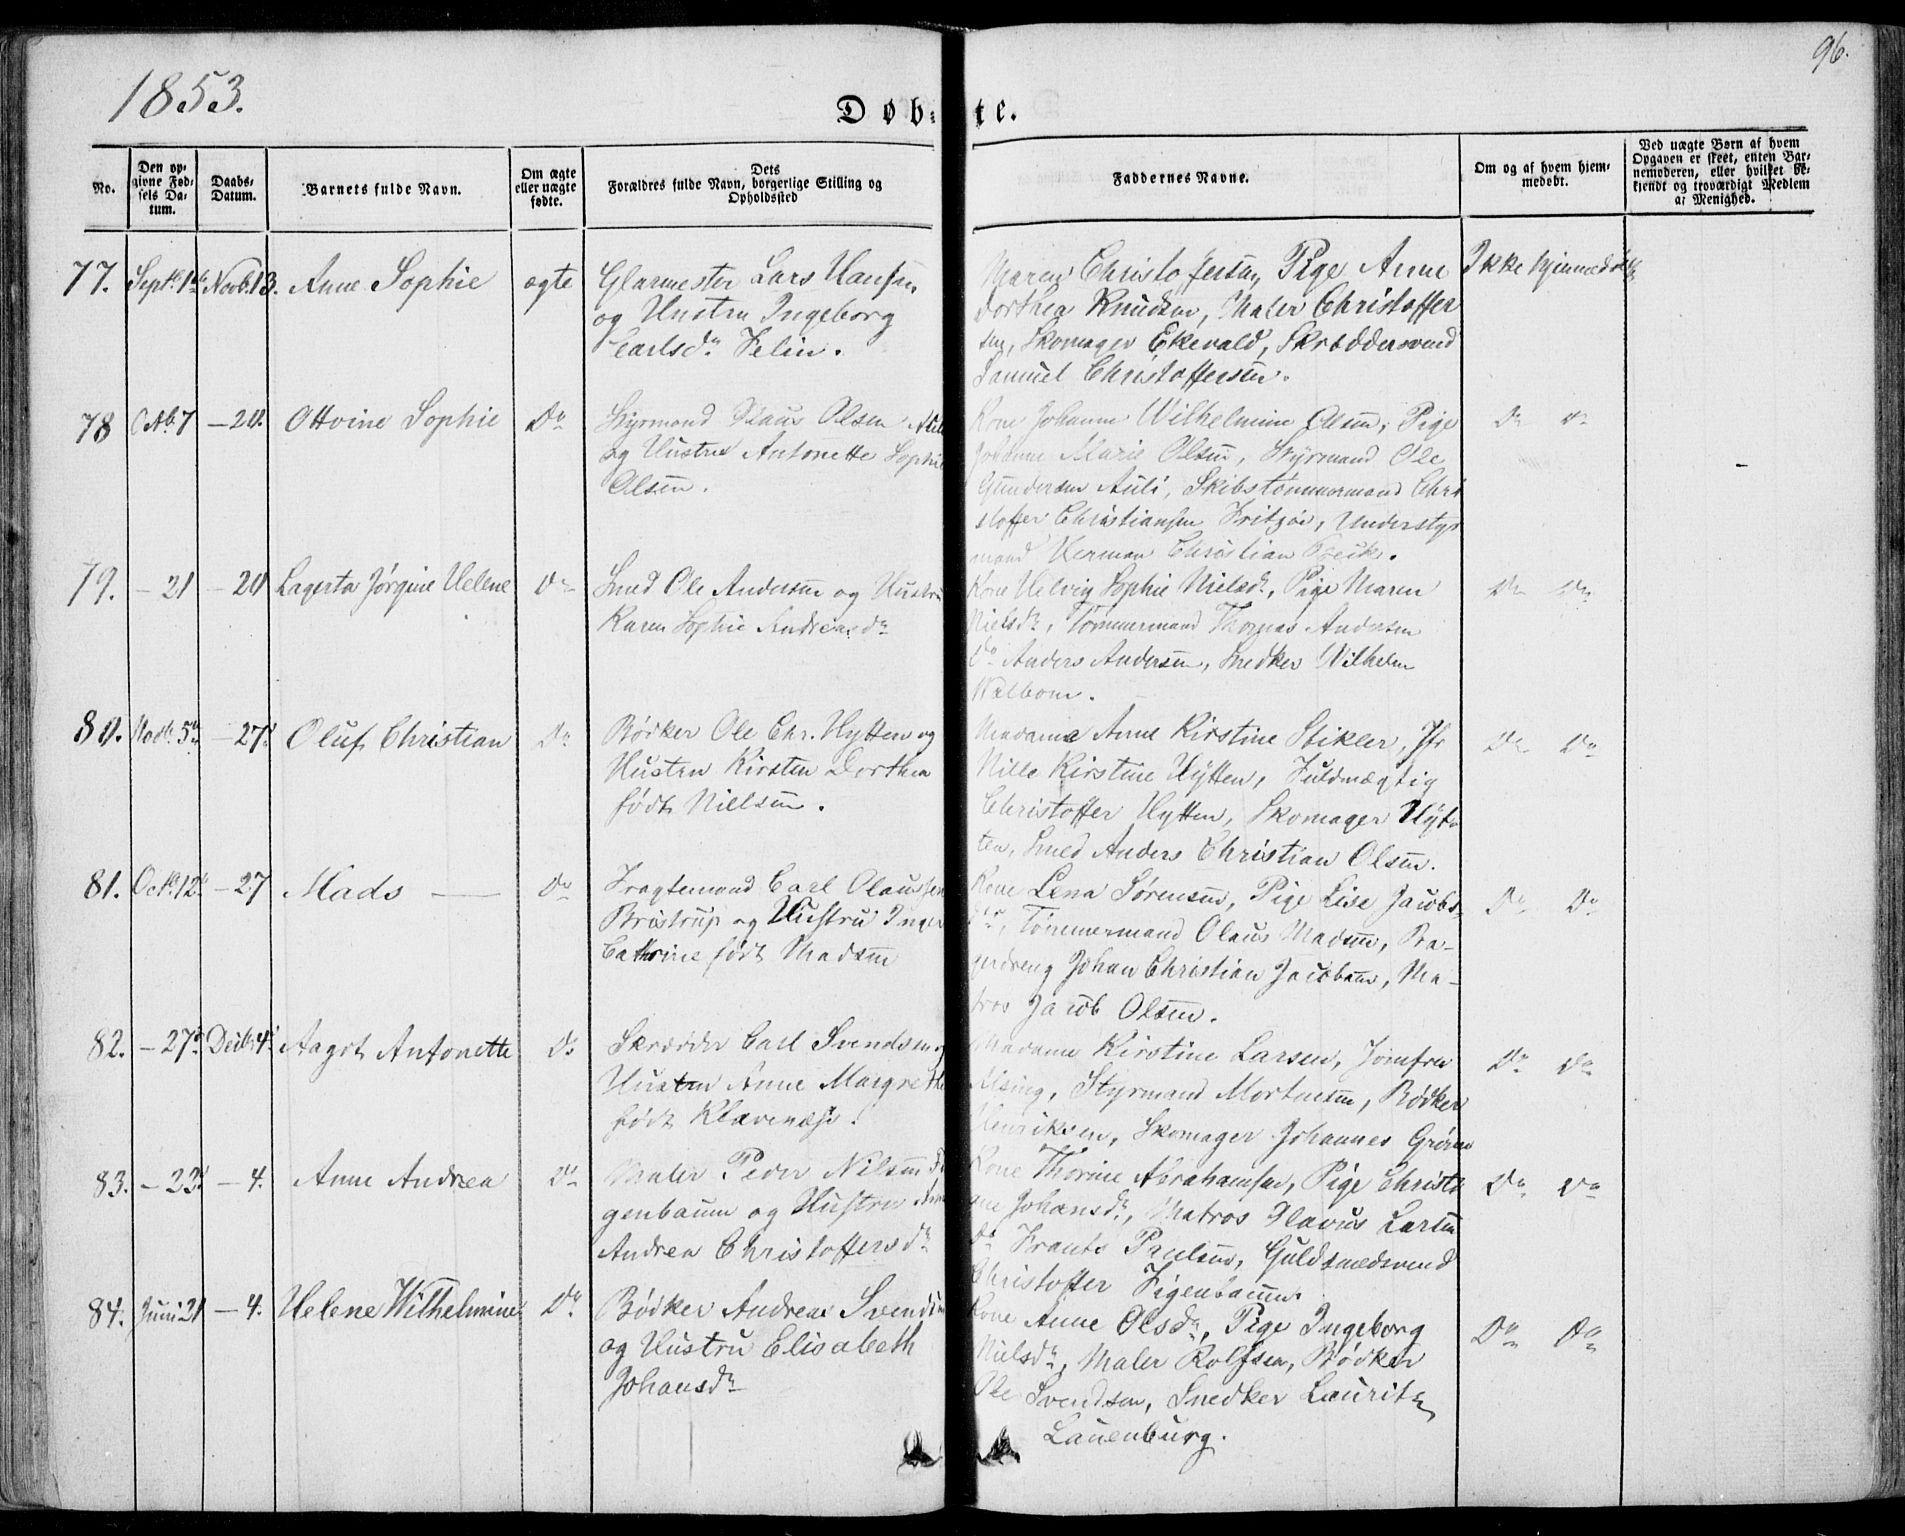 1853.
96.
Døb-
te.
No.
Den opgivne Fødsels Datum.
Daabs-Datum.
Barnets fulde Navn.
Om ægte eller uægte fødte.
Dets Forældres fulde Navn, borgerlige Stilling og Opholdssted
Faddernes Navne.
Om og af hvem hjemmedøbt.
Ved uægte Børn af hvem Opgaven er skeet, enten Barnemoderen, eller hvilket bekjendt og troværdigt Medlem af Menighed.
77. Septb. 1 Novb. 13. Anne Sophie ægte
Glarmester Lars Hansen
og Hustru Ingeborg
Carlsdr Felin.
Maren Christoffersen, Pige Anne
Dorthea Knudsen, Maler Christoffer
sen, Skomager Ekevald, Skræddersvend
Samuel Christoffersen.
Ikke hjemmedøbt
78 Octb. 7 – 20. Ottvine Sophie Do
Styrmand Olaus Olsen Auli
og Hustru Antonette Sophie
Olsen.
Kone Johanne Wilhelmine Olsen, Pige
Johanne Marie Olsen, Styrmand Ole
Gundersen Auli, Skibstømmermand Chri
stoffer Christiansen Fritzøe, Understyr
mand Herman Christian
Do Do
79. – 21 – 20 Lagerta Jørgine Helene Do
Smed Ole Andersen og Hustru
Karen Sophie Andreasdr
Kone Helvig Sophie Nielsdr, Pige Maren
Nielsdr, Tømmermand Thomas Andersen
Do Anders Andersen, Snedker Wilhelm
Walbom.
Do Do
80. Novb. 5 – 27. Oluf Christian Do
Bødker Ole Chr. Hytten og
Hustru Kirsten Dorthea
født Nielsen.
Madame Anne Kirstine Stikler, Jfr
Nille Kirstine Hytten, Fuldmægtig
Christoffer Hytten, Skomager Hyt-
ten, Smed Anders Christian Olsen.
Do Do
81. Octb. 12 – 27 Mads — Do
Fragtemand Carl Olaussen
Bristrup og Hustru Inger
Cathrine født Madsen
Kone Lena Sørensen, Pige Lise Jacobs-
dtr, Tømmermand Olaus Madsen, Ba-
gerdreng Johan Christian Jacobsen, Ma-
tros Jacob Olsen.
Do Do
82. – 27 Decb. 4 Aagot Antonette Do
Skræder Carl Svendsen og
Hustru Anne Margrethe
født Klavenæss.
Madame Kirstine Larsen, Jomfru
Alsing, Styrmand Mortensen, Bødker
Henriksen, Skomager Johannes Grøm
Do Do
83. – 23. – 4. Anne Andrea Do
Maler Peder Nilsen Fi
genbaum og Hustru Anne
Andrea Christoffersdr
Kone Thorine Abrahamsen, Pige Christi
ane Johansdr, Matros Olavus Larsen
Do Frants Paulsen, Guldsmedsvend
Christoffer Figenbaum.
Do Do
84. Juni 21 – 4. Helene Wilhelmine Do
Bødker Andreas Svendsen
og Hustru Elisabeth
Johansdr
Kone Anne Olsdr, Pige Ingeborg
Nielsdr, Maler Rolfsen, Bødker
Ole Svendsen, Snedker Lauritz
Lauenburg.
Do Do